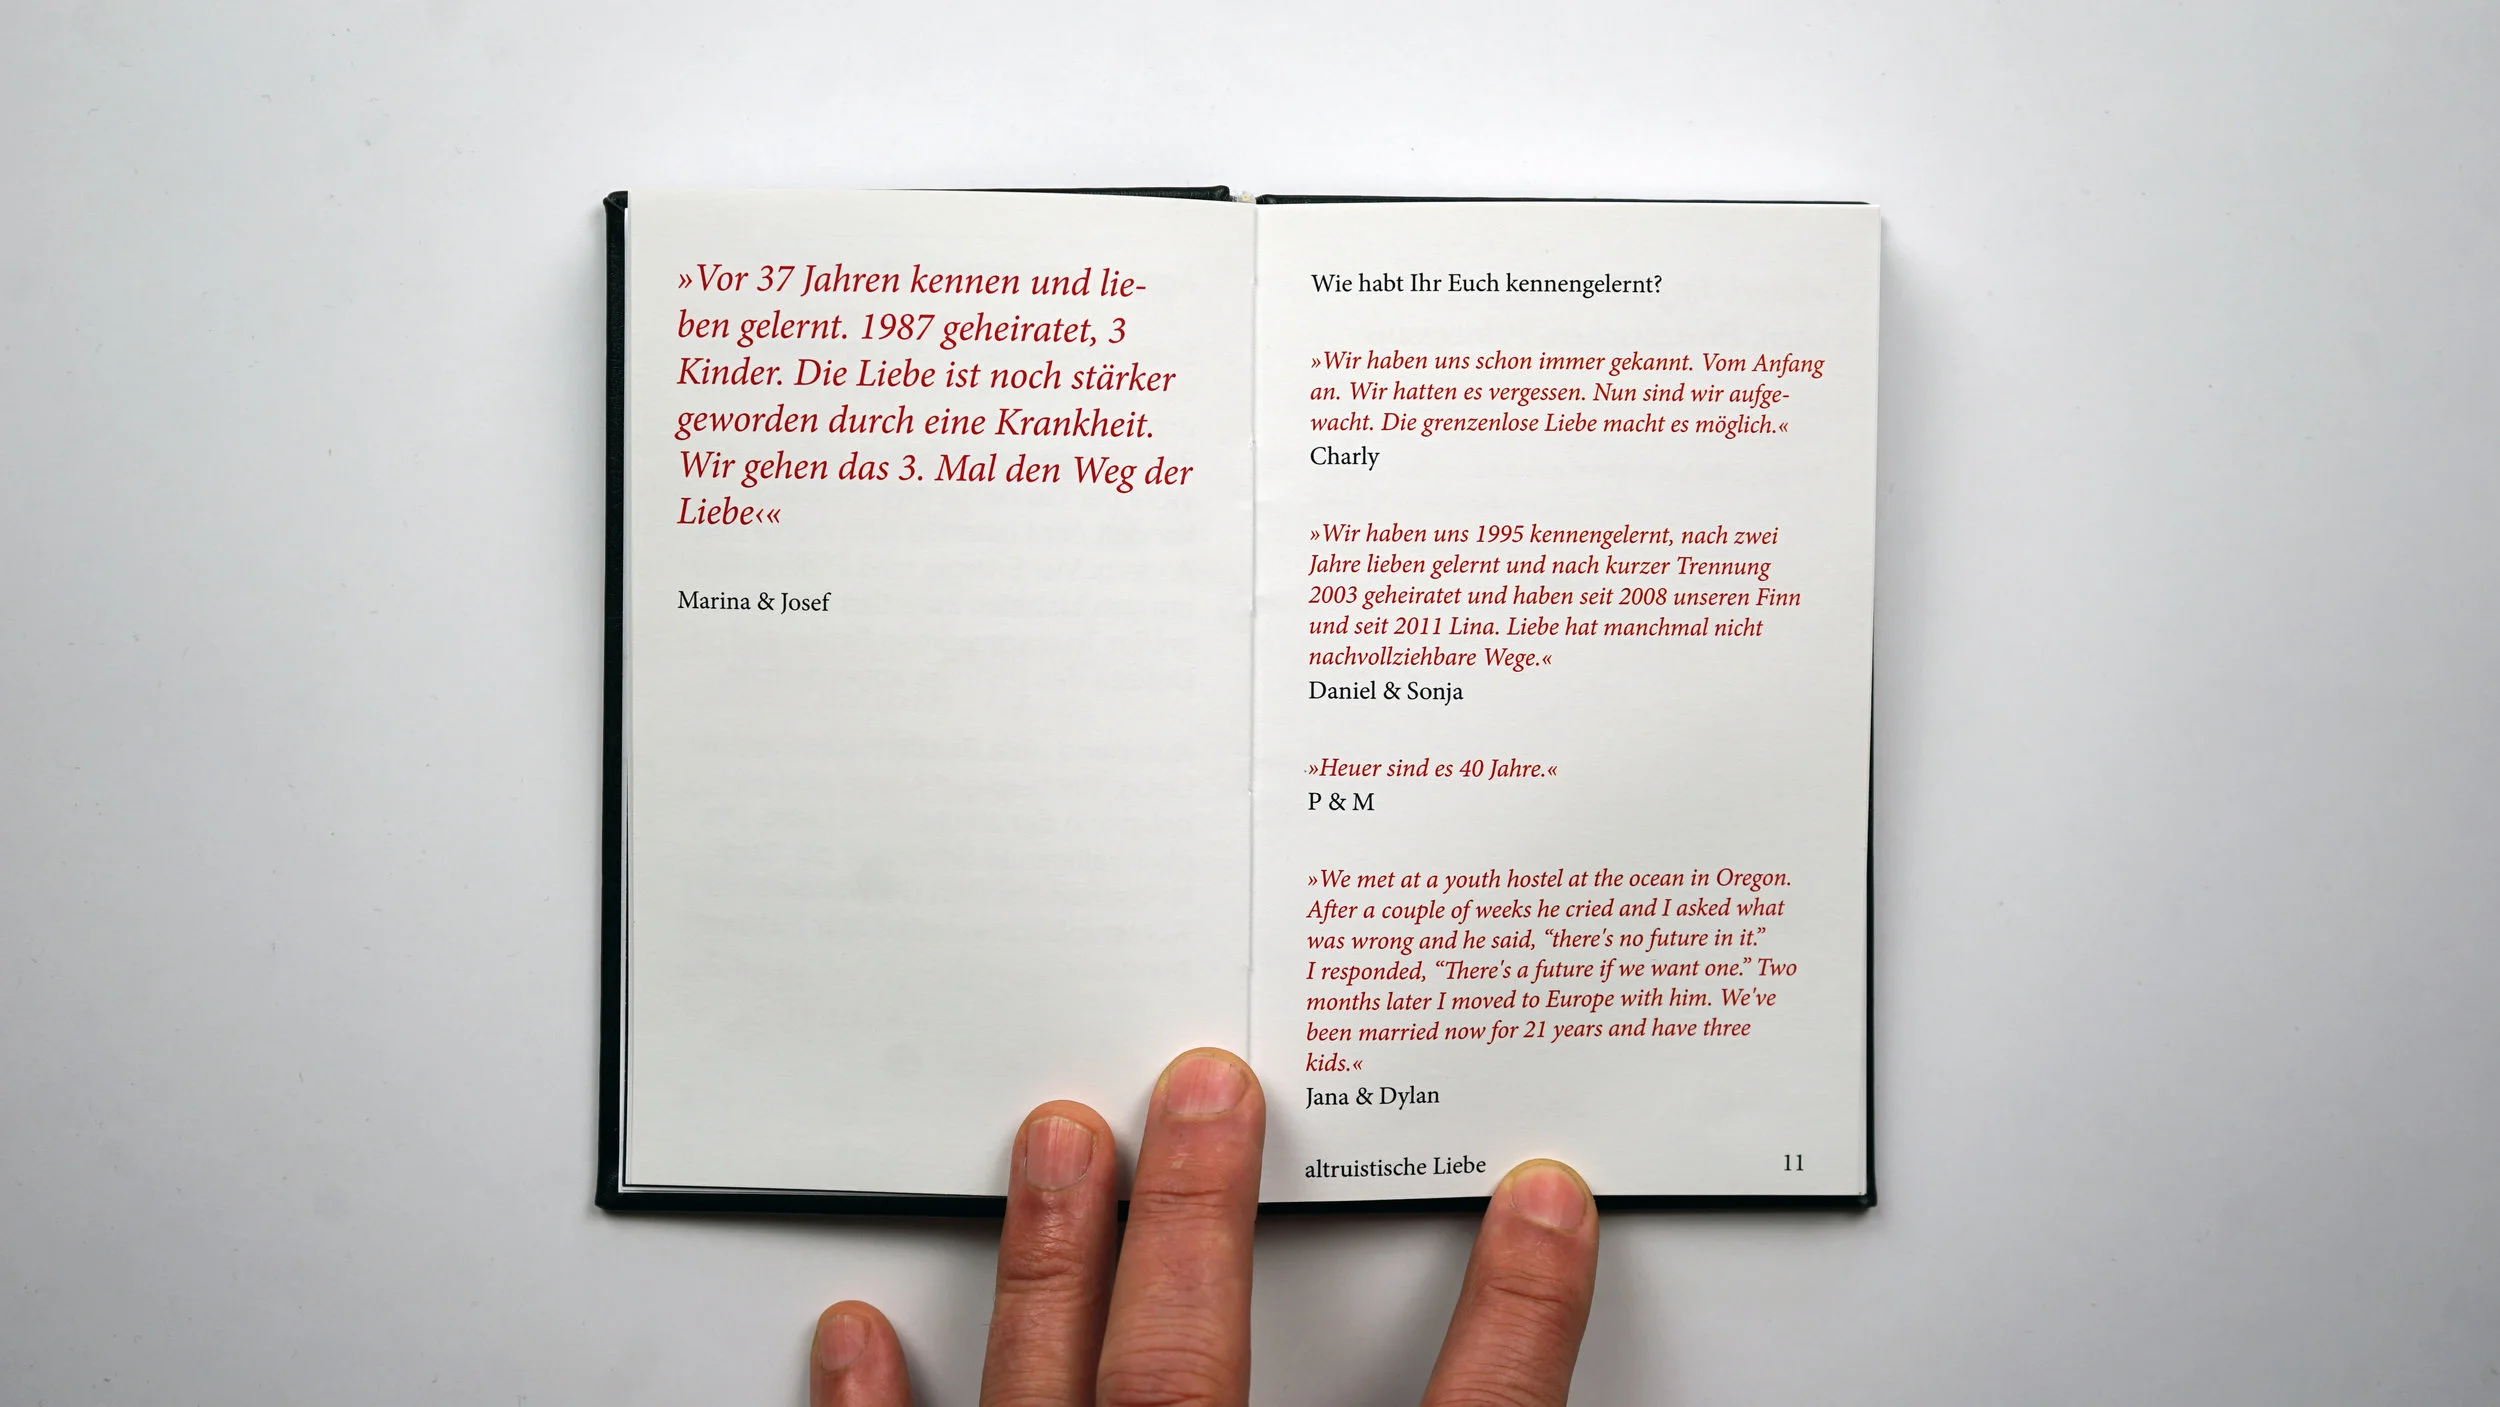 »Vor 37 Jahren kennen und lie-
ben gelernt. 1987 geheiratet, 3
Kinder. Die Liebe ist noch stärker
geworden durch eine Krankheit.
Wir gehen das 3. Mal den Weg der
Liebe‹«
Marina & Josef
Wie habt Ihr Euch kennengelernt?
»Wir haben uns schon immer gekannt. Vom Anfang
an. Wir hatten es vergessen. Nun sind wir aufge-
wacht. Die grenzenlose Liebe macht es möglich.«
Charly
»Wir haben uns 1995 kennengelernt, nach zwei
Jahre lieben gelernt und nach kurzer Trennung
2003 geheiratet und haben seit 2008 unseren Finn
und seit 2011 Lina. Liebe hat manchmal nicht
nachvollziehbare Wege.«
Daniel & Sonja
»Heuer sind es 40 Jahre.«
P & M
»We met at a youth hostel at the ocean in Oregon.
After a couple of weeks he cried and I asked what
was wrong and he said, “there's no future in it.”
I responded, “There's a future if we want one.” Two
months later I moved to Europe with him. We've
been married now for 21 years and have three
kids.«
Jana & Dylan
altruistische Liebe 11